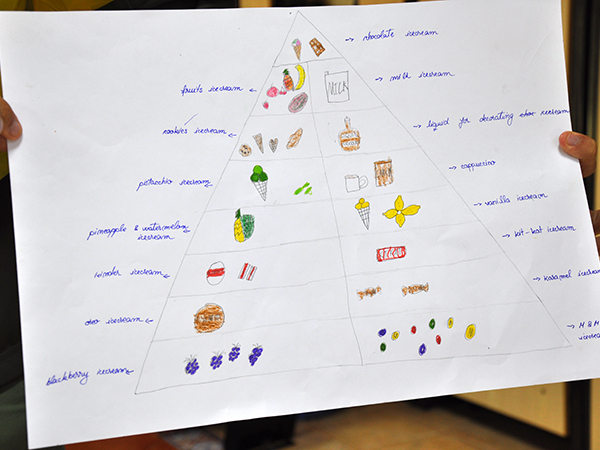 chocolate icecream
fruits icecream
milk icecream
MILK
cookies icecream
liquid for decorating
icecream
cappuccino
pistacchio icecream
vanilla icecream
pineapple & watermelon
icecream
kit-kat icecream
kinder icecream
karamel icecream
oreo icecream
M & M
icecream
blackberry icecream